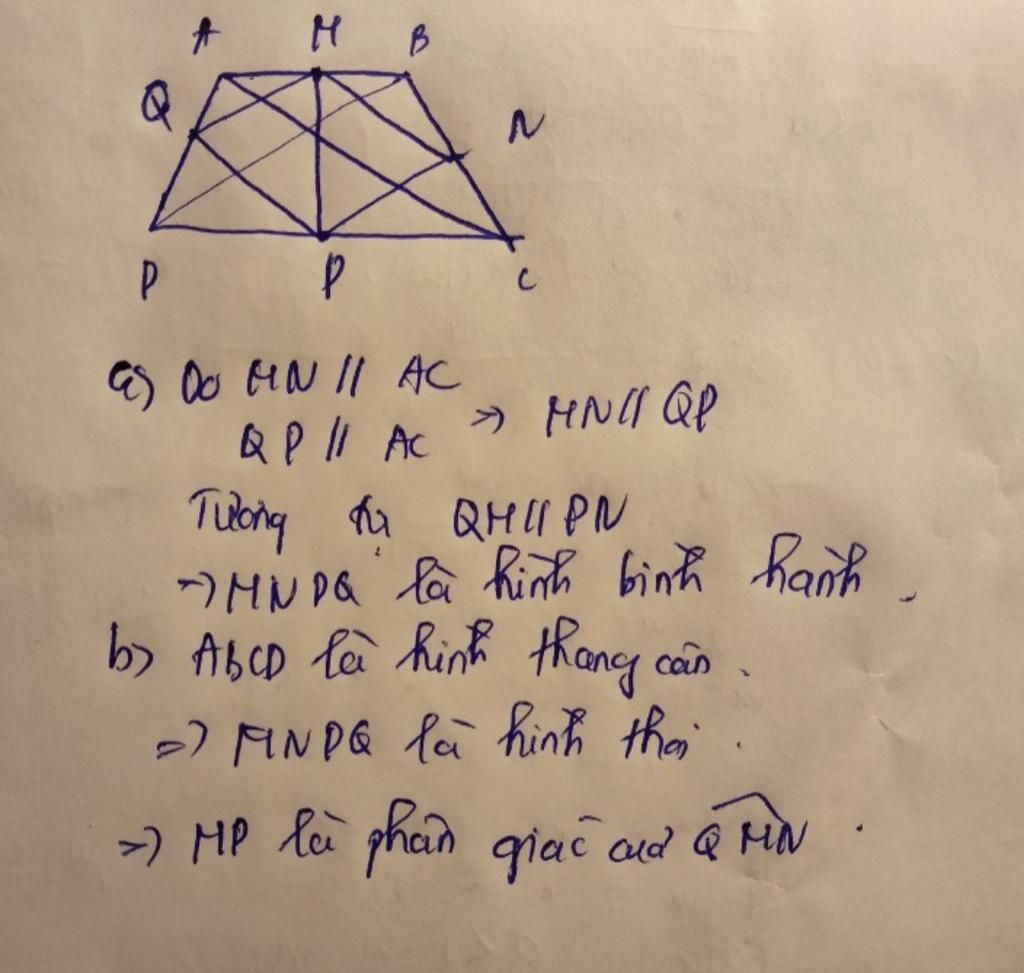 A M B
Q N
D P C
a) Do MN // AC
QP // AC => MN // QP
Tương tự QM // PN
=> MNPQ là hình bình hành.
b) ABCD là hình thang cân.
=> MNPQ là hình thoi.
=> MP là phân giác của QMN.